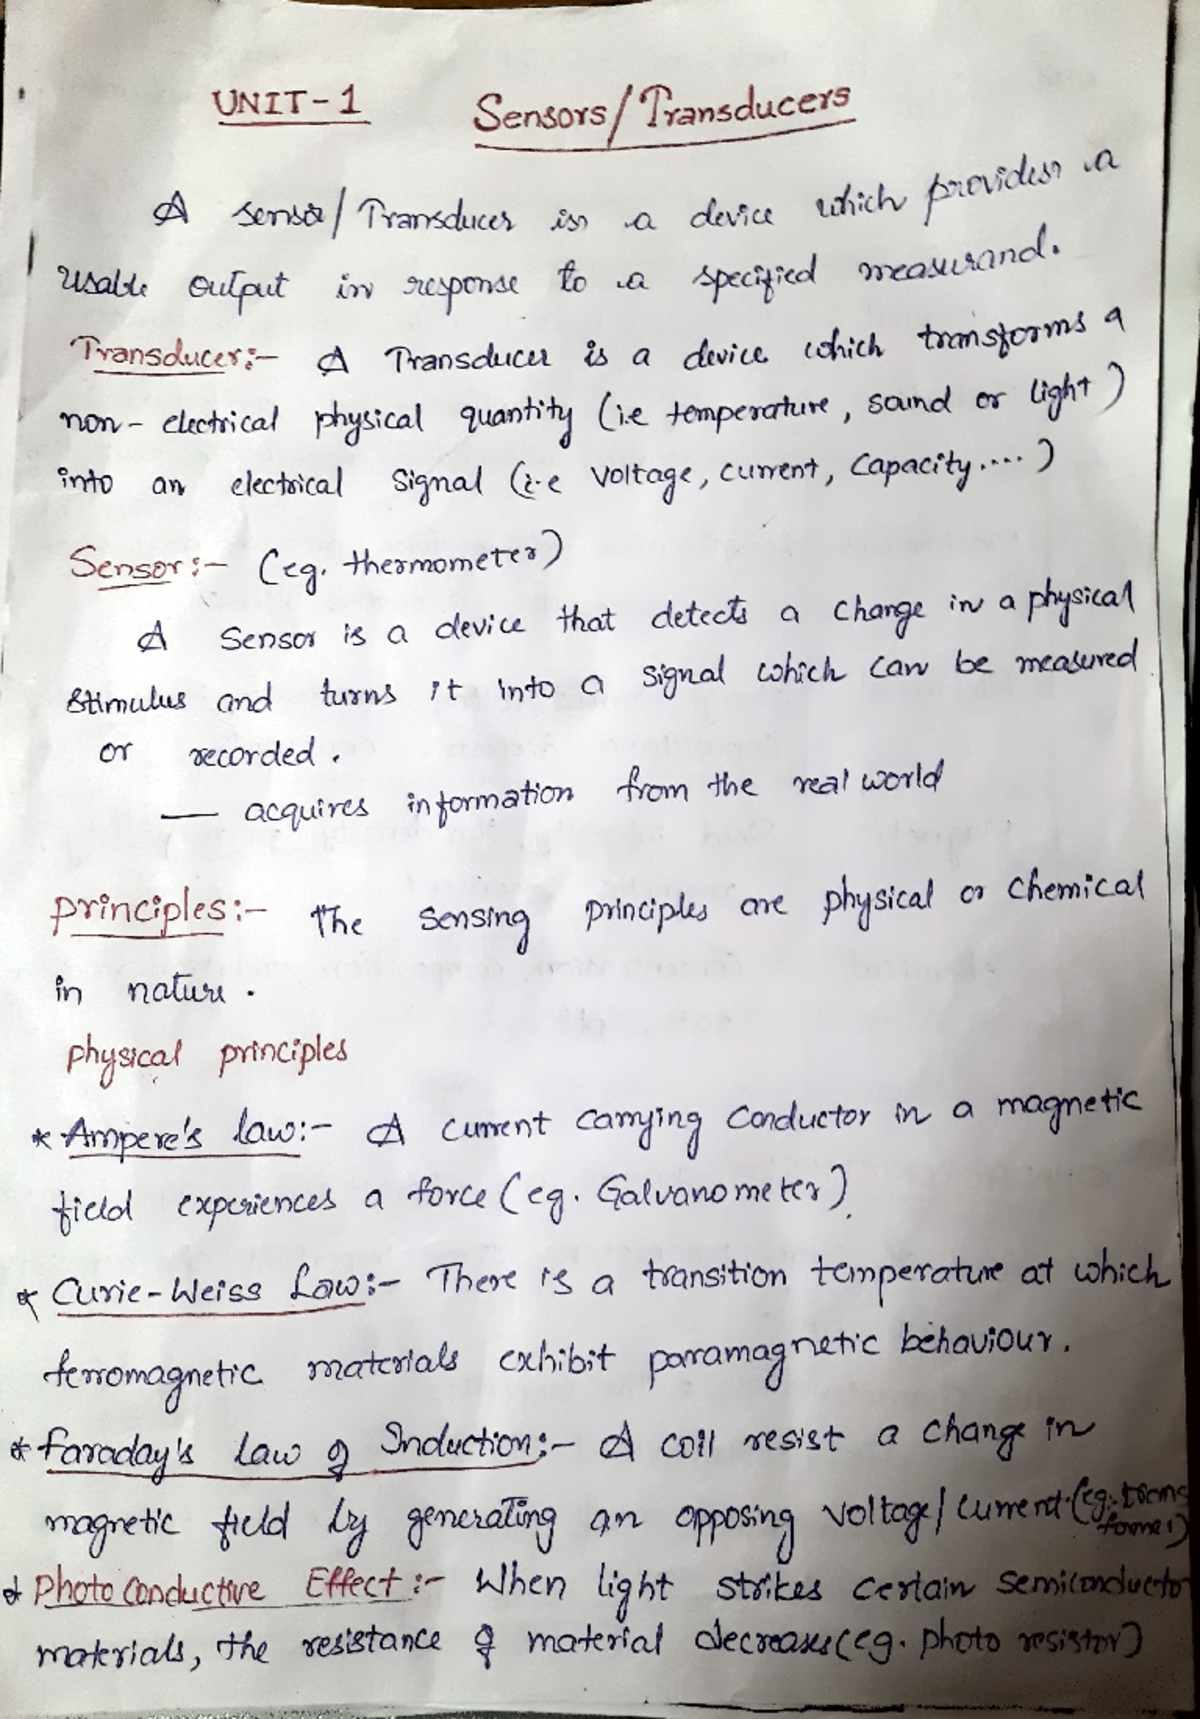 UNIT-1 Sensors/Transducers
A sensor/Transducer is a device which provides a
usable output in response to a specified measurand.
Transducer:- A Transducer is a device which transforms a
non-electrical physical quantity (i.e temperature, sound or light)
into an electrical Signal (i.e Voltage, current, Capacity....)
Sensor:- (eg. thermometer)
A Sensor is a device that detects a change in a physical
stimulus and turns it into a signal which can be measured
or recorded.
— acquires information from the real world
principles:- The sensing principles are physical or chemical
in nature.
physical principles
* Ampere's law:- A current carrying conductor in a magnetic
field experiences a force (eg. Galvanometer).
* Curie-Weiss Law:- There is a transition temperature at which
ferromagnetic materials exhibit paramagnetic behaviour.
* Faraday's law of Induction:- A coil resist a change in
magnetic field by generating an opposing voltage/current.(eg:- trans
former)
* Photo Conductive Effect:- When light strikes certain semiconductor
materials, the resistance of material decreases (eg. photo resistor)